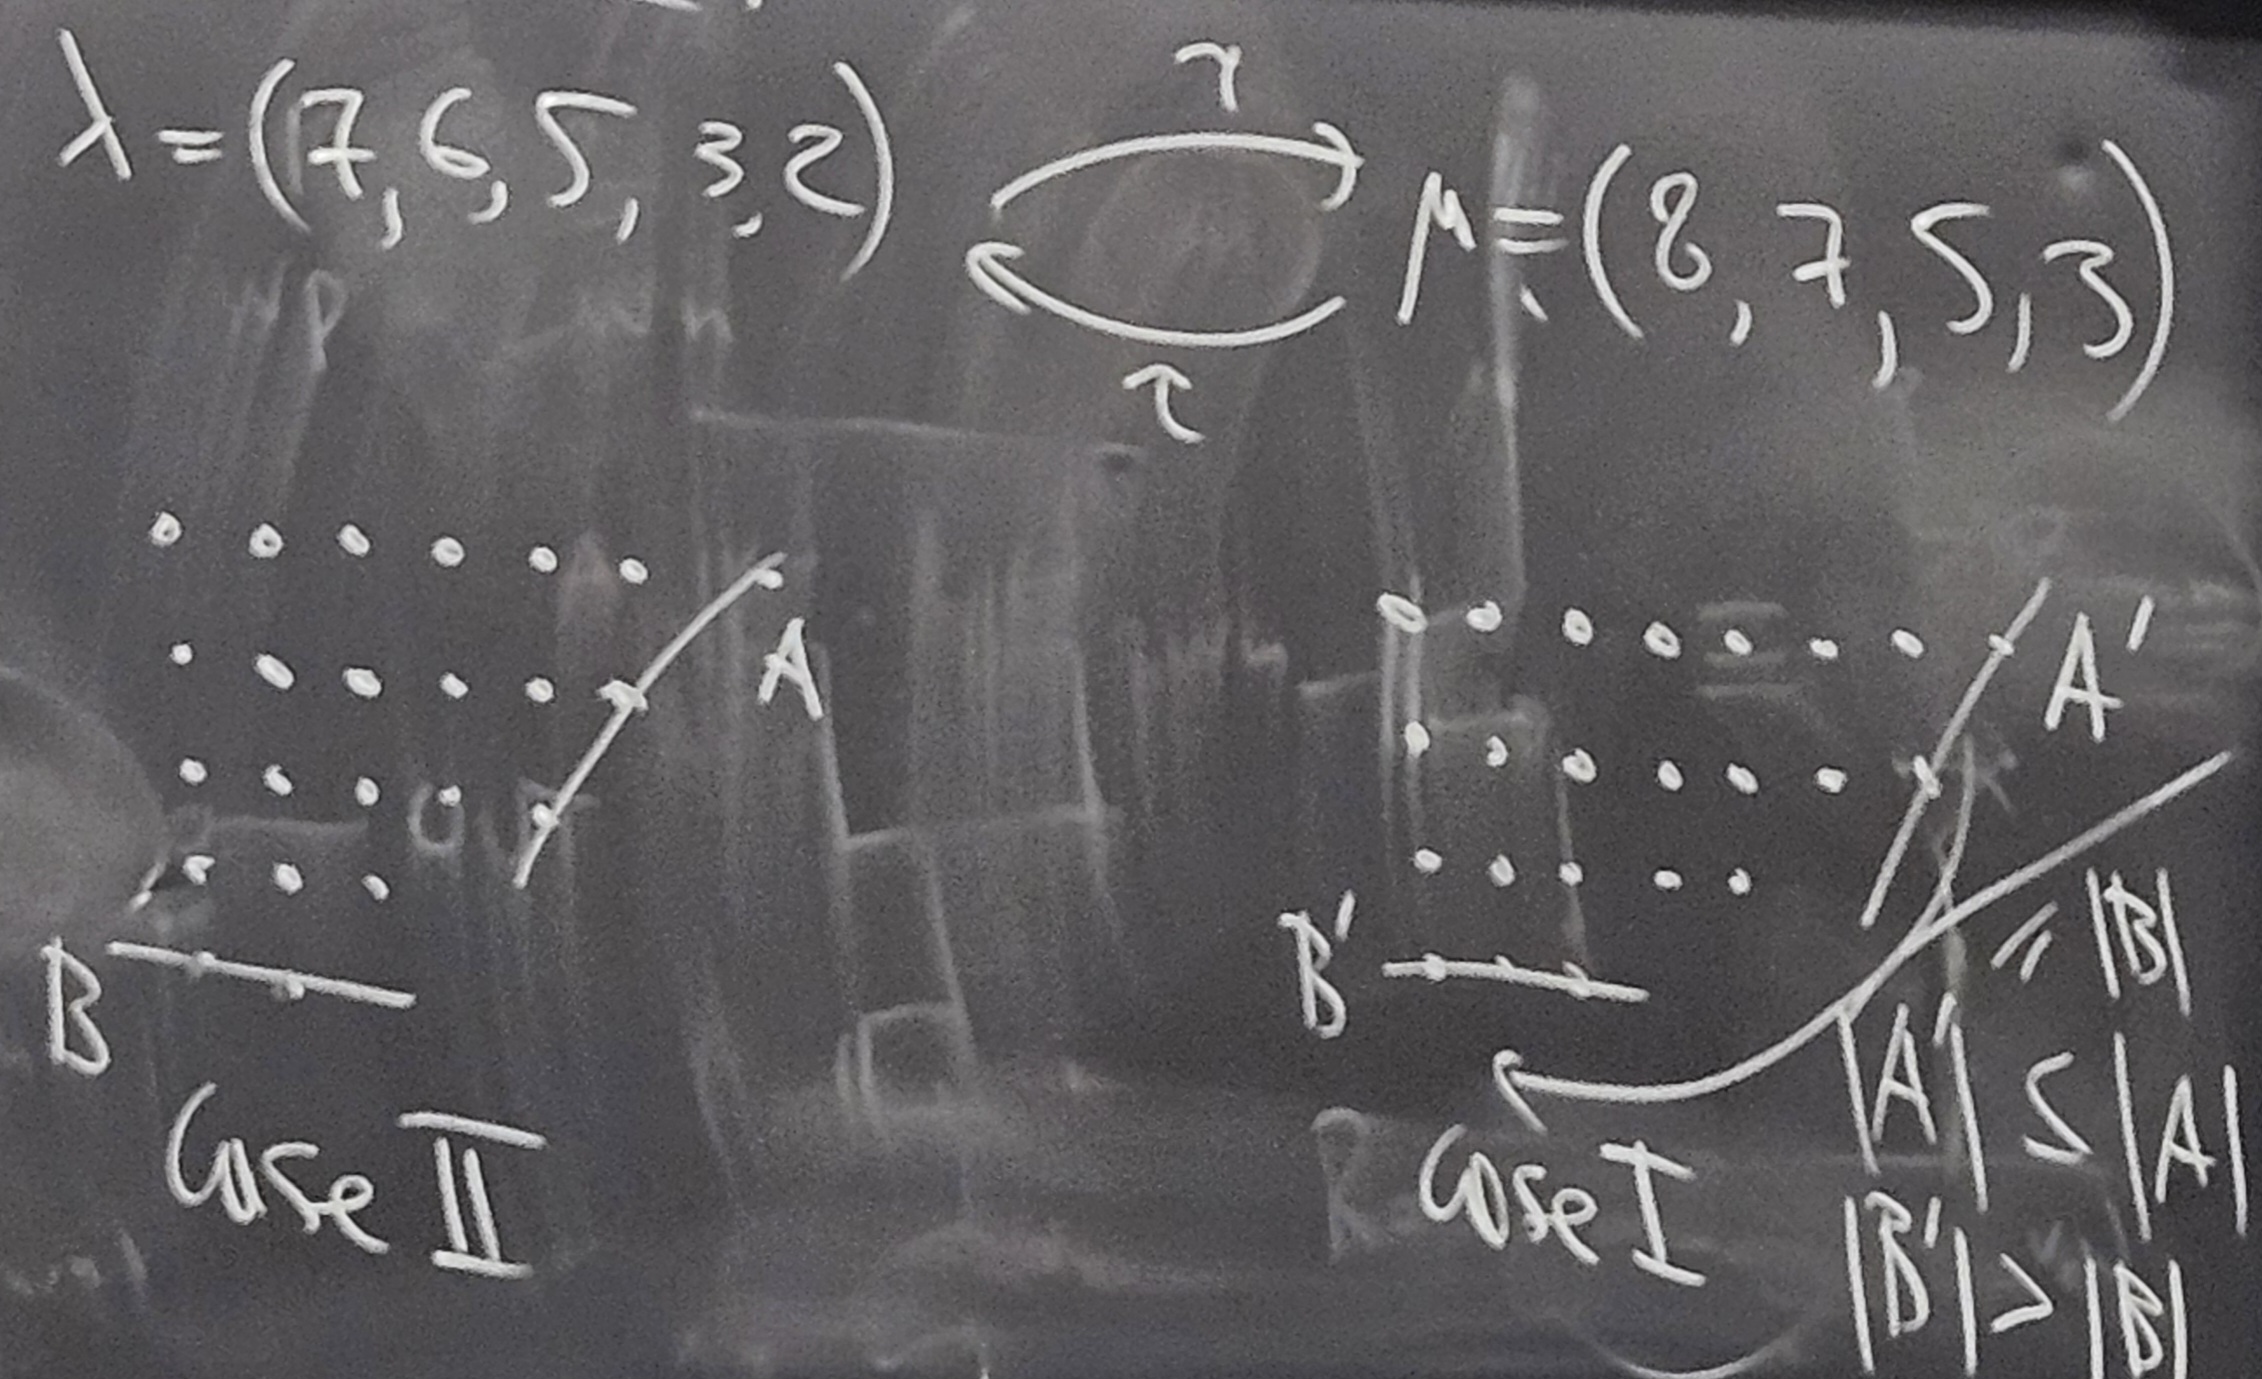 λ = (7, 6, 5, 3, 2) τ μ = (8, 7, 5, 3)
τ
A A'
B B' = |B|
|A'| ≤ |A|
Case II Case I
|B'| > |B|